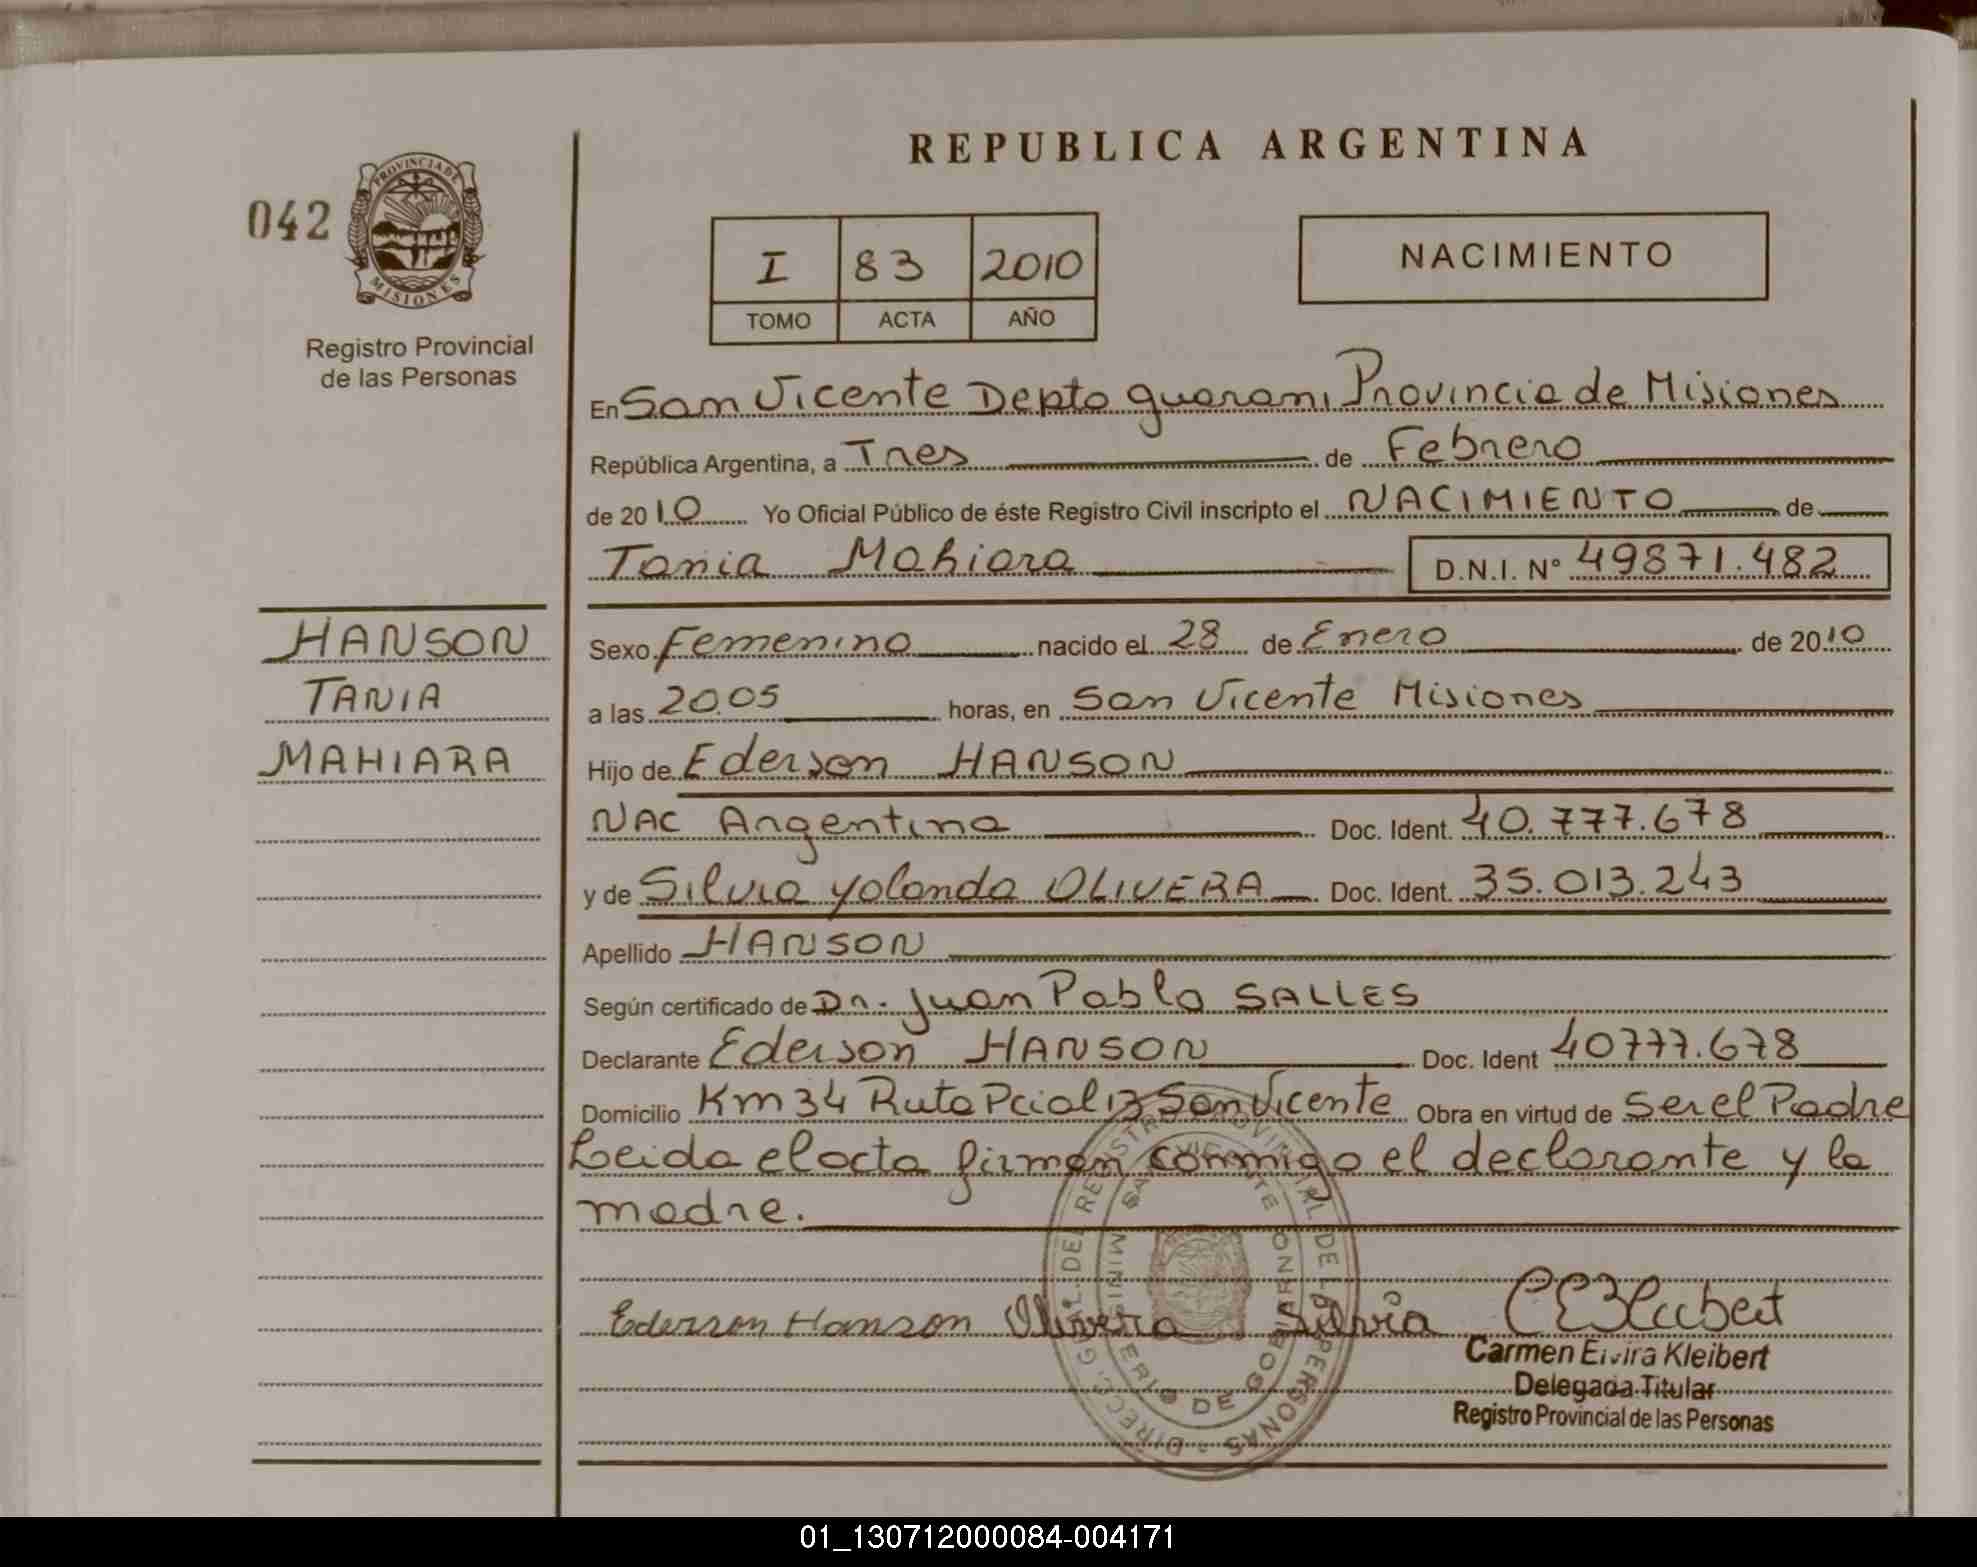 REPUBLICA ARGENTINA
042
PROVINCIA DE
MISIONES
Registro Provincial
de las Personas
I 83 2010
TOMO ACTA AÑO
NACIMIENTO
En San Vicente Depto guarani Provincia de Misiones
República Argentina, a Tres de Febrero
de 2010 Yo Oficial Público de éste Registro Civil inscripto el NACIMIENTO de
Tania Mahiara D.N.I. Nº 49871.482
HANSON
TANIA
MAHIARA
Sexo Femenino nacido el 28 de Enero de 2010
a las 20.05 horas, en San Vicente Misiones
Hijo de Ederson HANSON
NAC Argentina Doc. Ident. 40.777.678
y de Silvia Yolanda OLIVERA Doc. Ident. 35.013.243
Apellido HANSON
Según certificado de Dr. Juan Pablo SALLES
Declarante Ederson HANSON Doc. Ident 40777.678
Domicilio Km 34 Ruta Pcial 13 San Vicente Obra en virtud de Ser el Padre
Leida el acta firman conmigo el declarante y la
madre.
DIRECC. GRAL. DEL REGISTRO PROVINCIAL DE LAS PERSONAS
SAN VICENTE
MINISTERIO DE GOBIERNO
Ederson Hanson Olivera Silvia CEKleibert
Carmen Elvira Kleibert
Delegada Titular
Registro Provincial de las Personas
01_130712000084-004171